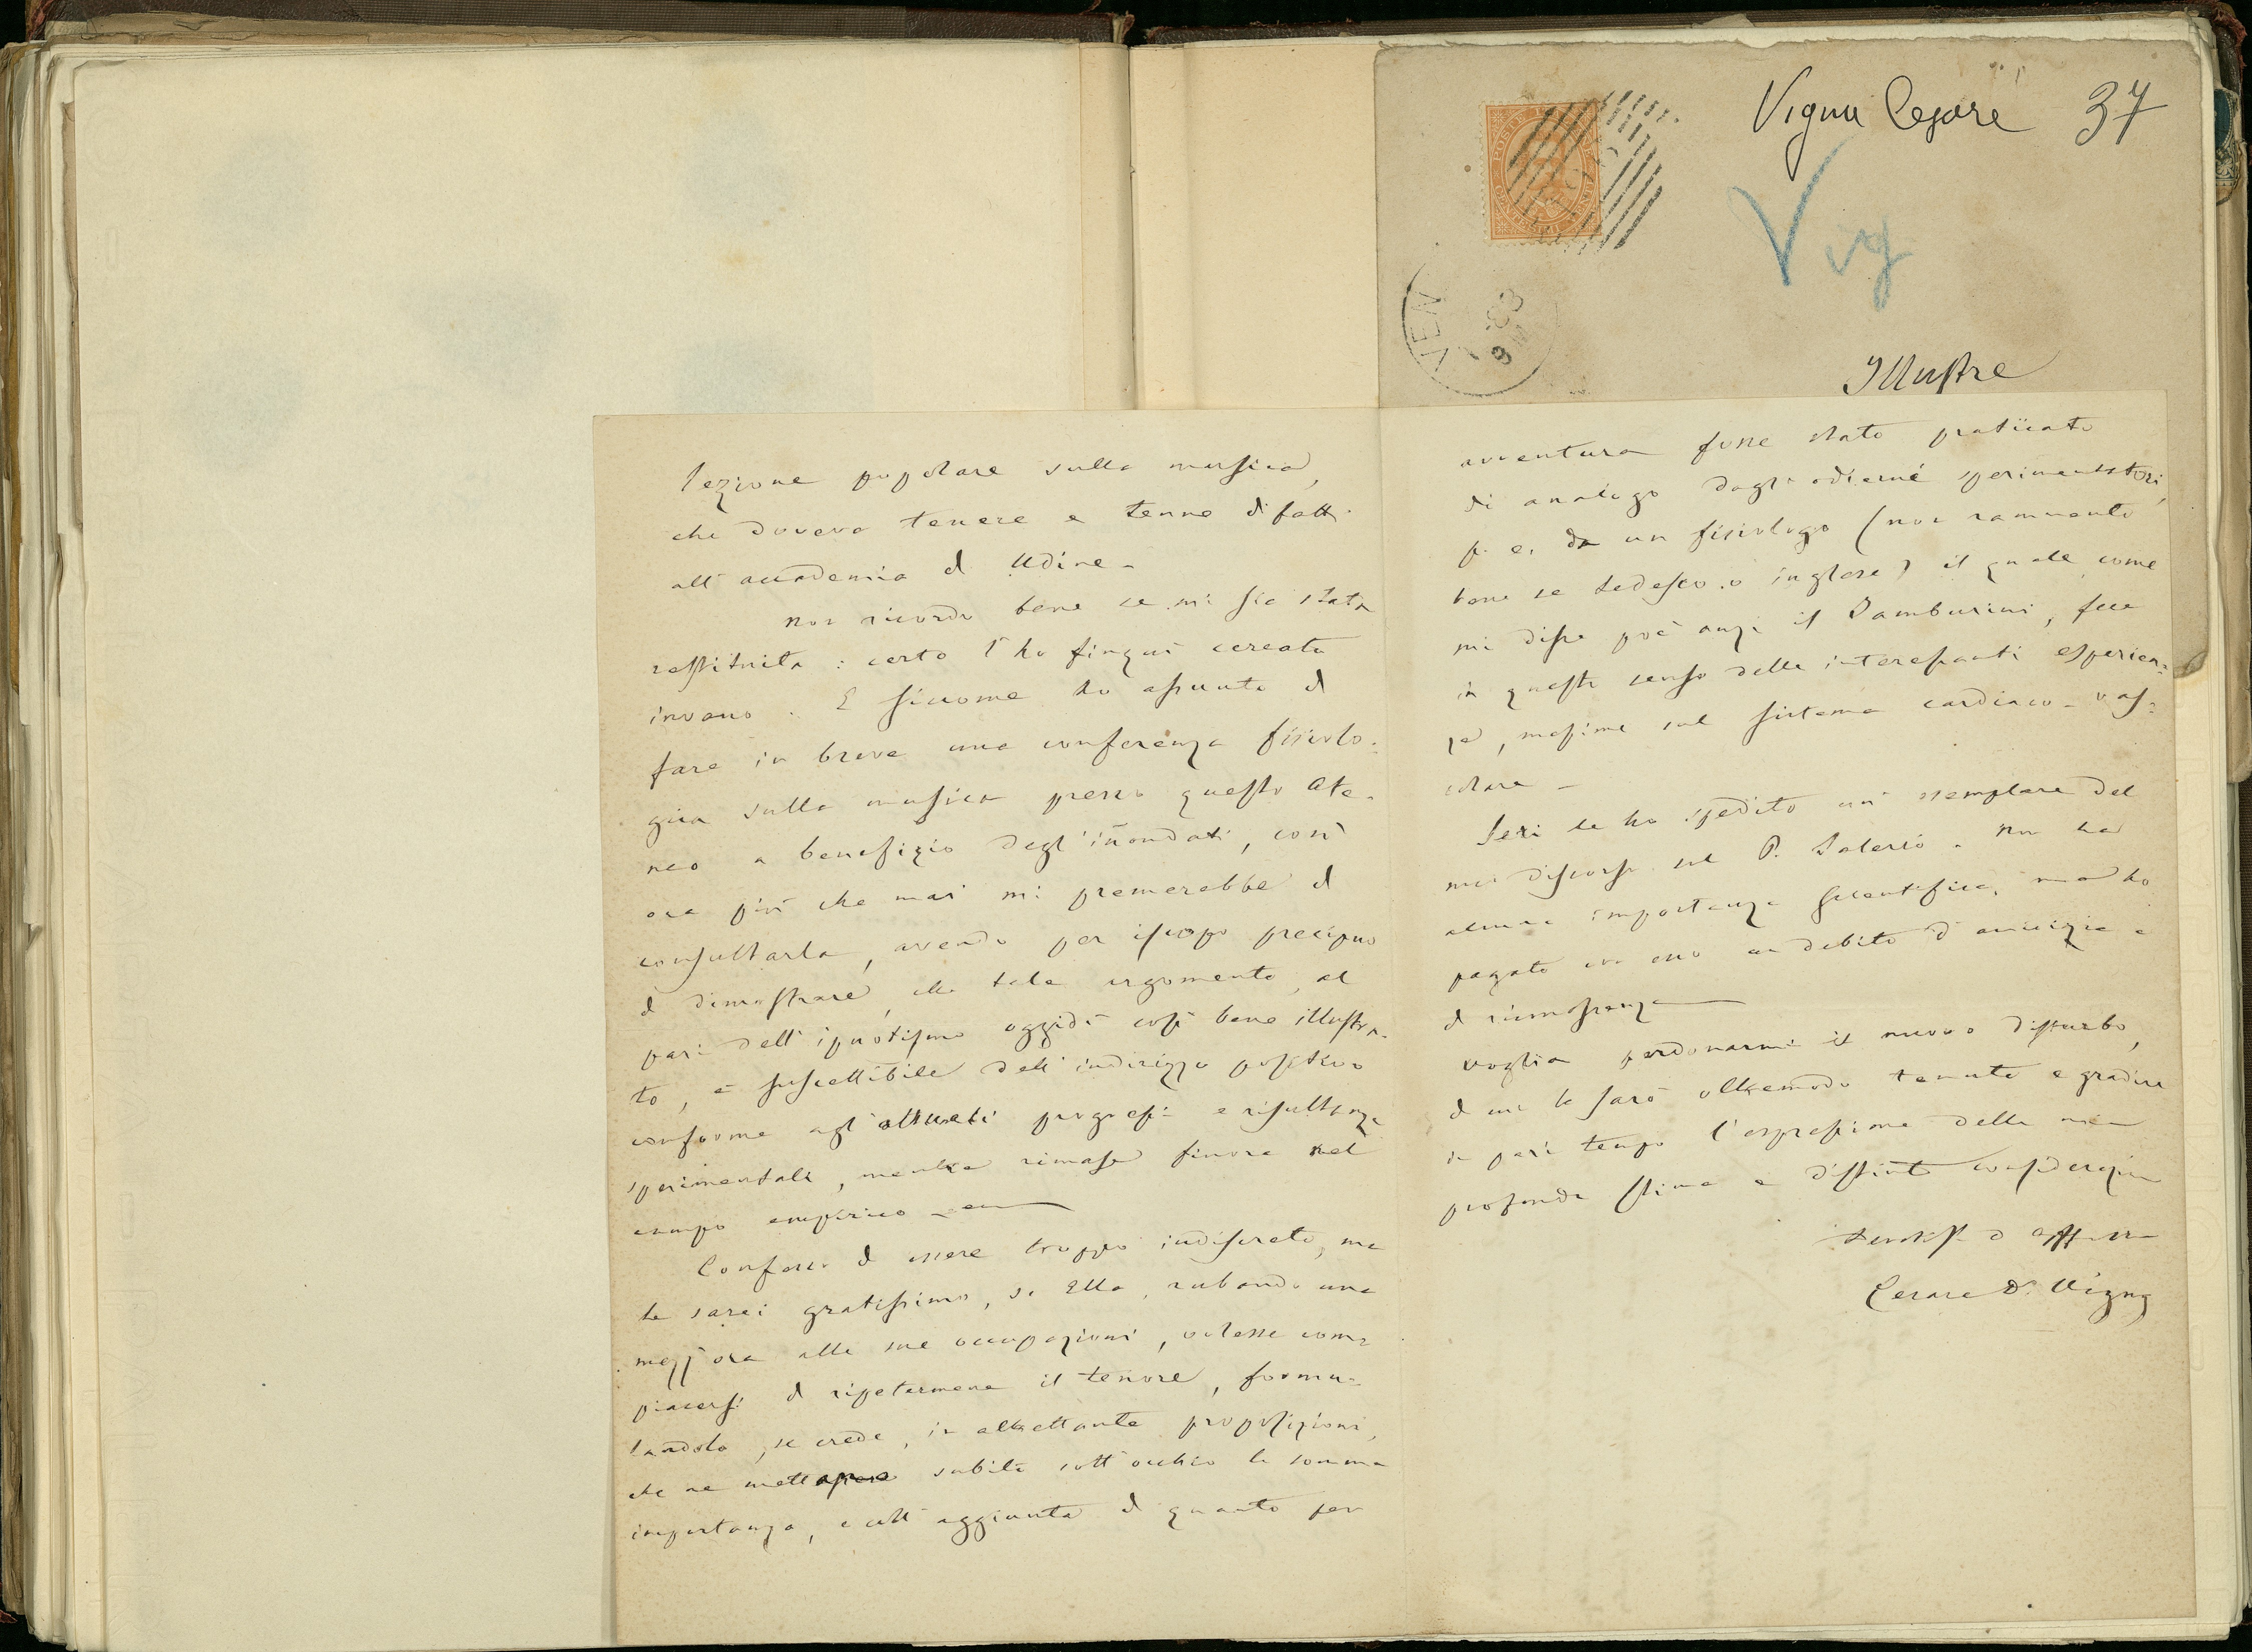 Vigna Cesare 37
Vig
VEN
Illustre
lezione popolare sulla musica,
che doveva tenere e tenne difatti
all'accademia di Udine -
Non ricordo bene se mi sia stata
restituita: certo l'ho finqui cercata
invano. E siccome ho assunto di
fare in breve una conferenza fisiolo-
gica sulla musica presso questo Ate-
neo a benefizio degl'inondati, così
ora più che mai mi premerebbe di
consultarla, avendo per iscopo precipuo
di dimostrare, che tale argomento, al
pari dell'ipnotismo oggidì così bene illustra-
to, è suscettibile dell'indirizzo positivo
conforme agl'attuali progressi e risultanze
sperimentali, mentre rimase finora nel
campo empirico
Confesso di essere troppo indiscreto, ma
le sarei gratissimo, se Ella, rubando una
mezz'ora alle sue occupazioni, volesse com-
piacersi di ripetermene il tenore, formu-
landolo, se crede, in altrettante proposizioni,
che ne subito sott'occhio la somma
importanza, e coll'aggiunta di quanto per
avventura fosse stato praticato
di analogo dagli odierni sperimentatori,
p. e. da un fisiologo (non rammento
bene se tedesco o inglese) il quale, come
mi disse poc'anzi il Tamburini, fece
in questo senso delle interessanti esperien-
ze, massime sul sistema cardiaco-vas-
colare -
Ieri le ho spedito un esemplare del
mio discorso sul P. Salerio. Non ha
alcuna importanza scientifica, ma ho
pagato con esso un debito d'amicizia e
di riconoscenza
Voglia perdonarmi il nuovo disturbo,
di cui le sarò oltremodo tenuto e gradire
in pari tempo l'espressione della mia
profonda stima e distinta considerazione
Cesare Dr. Vigna